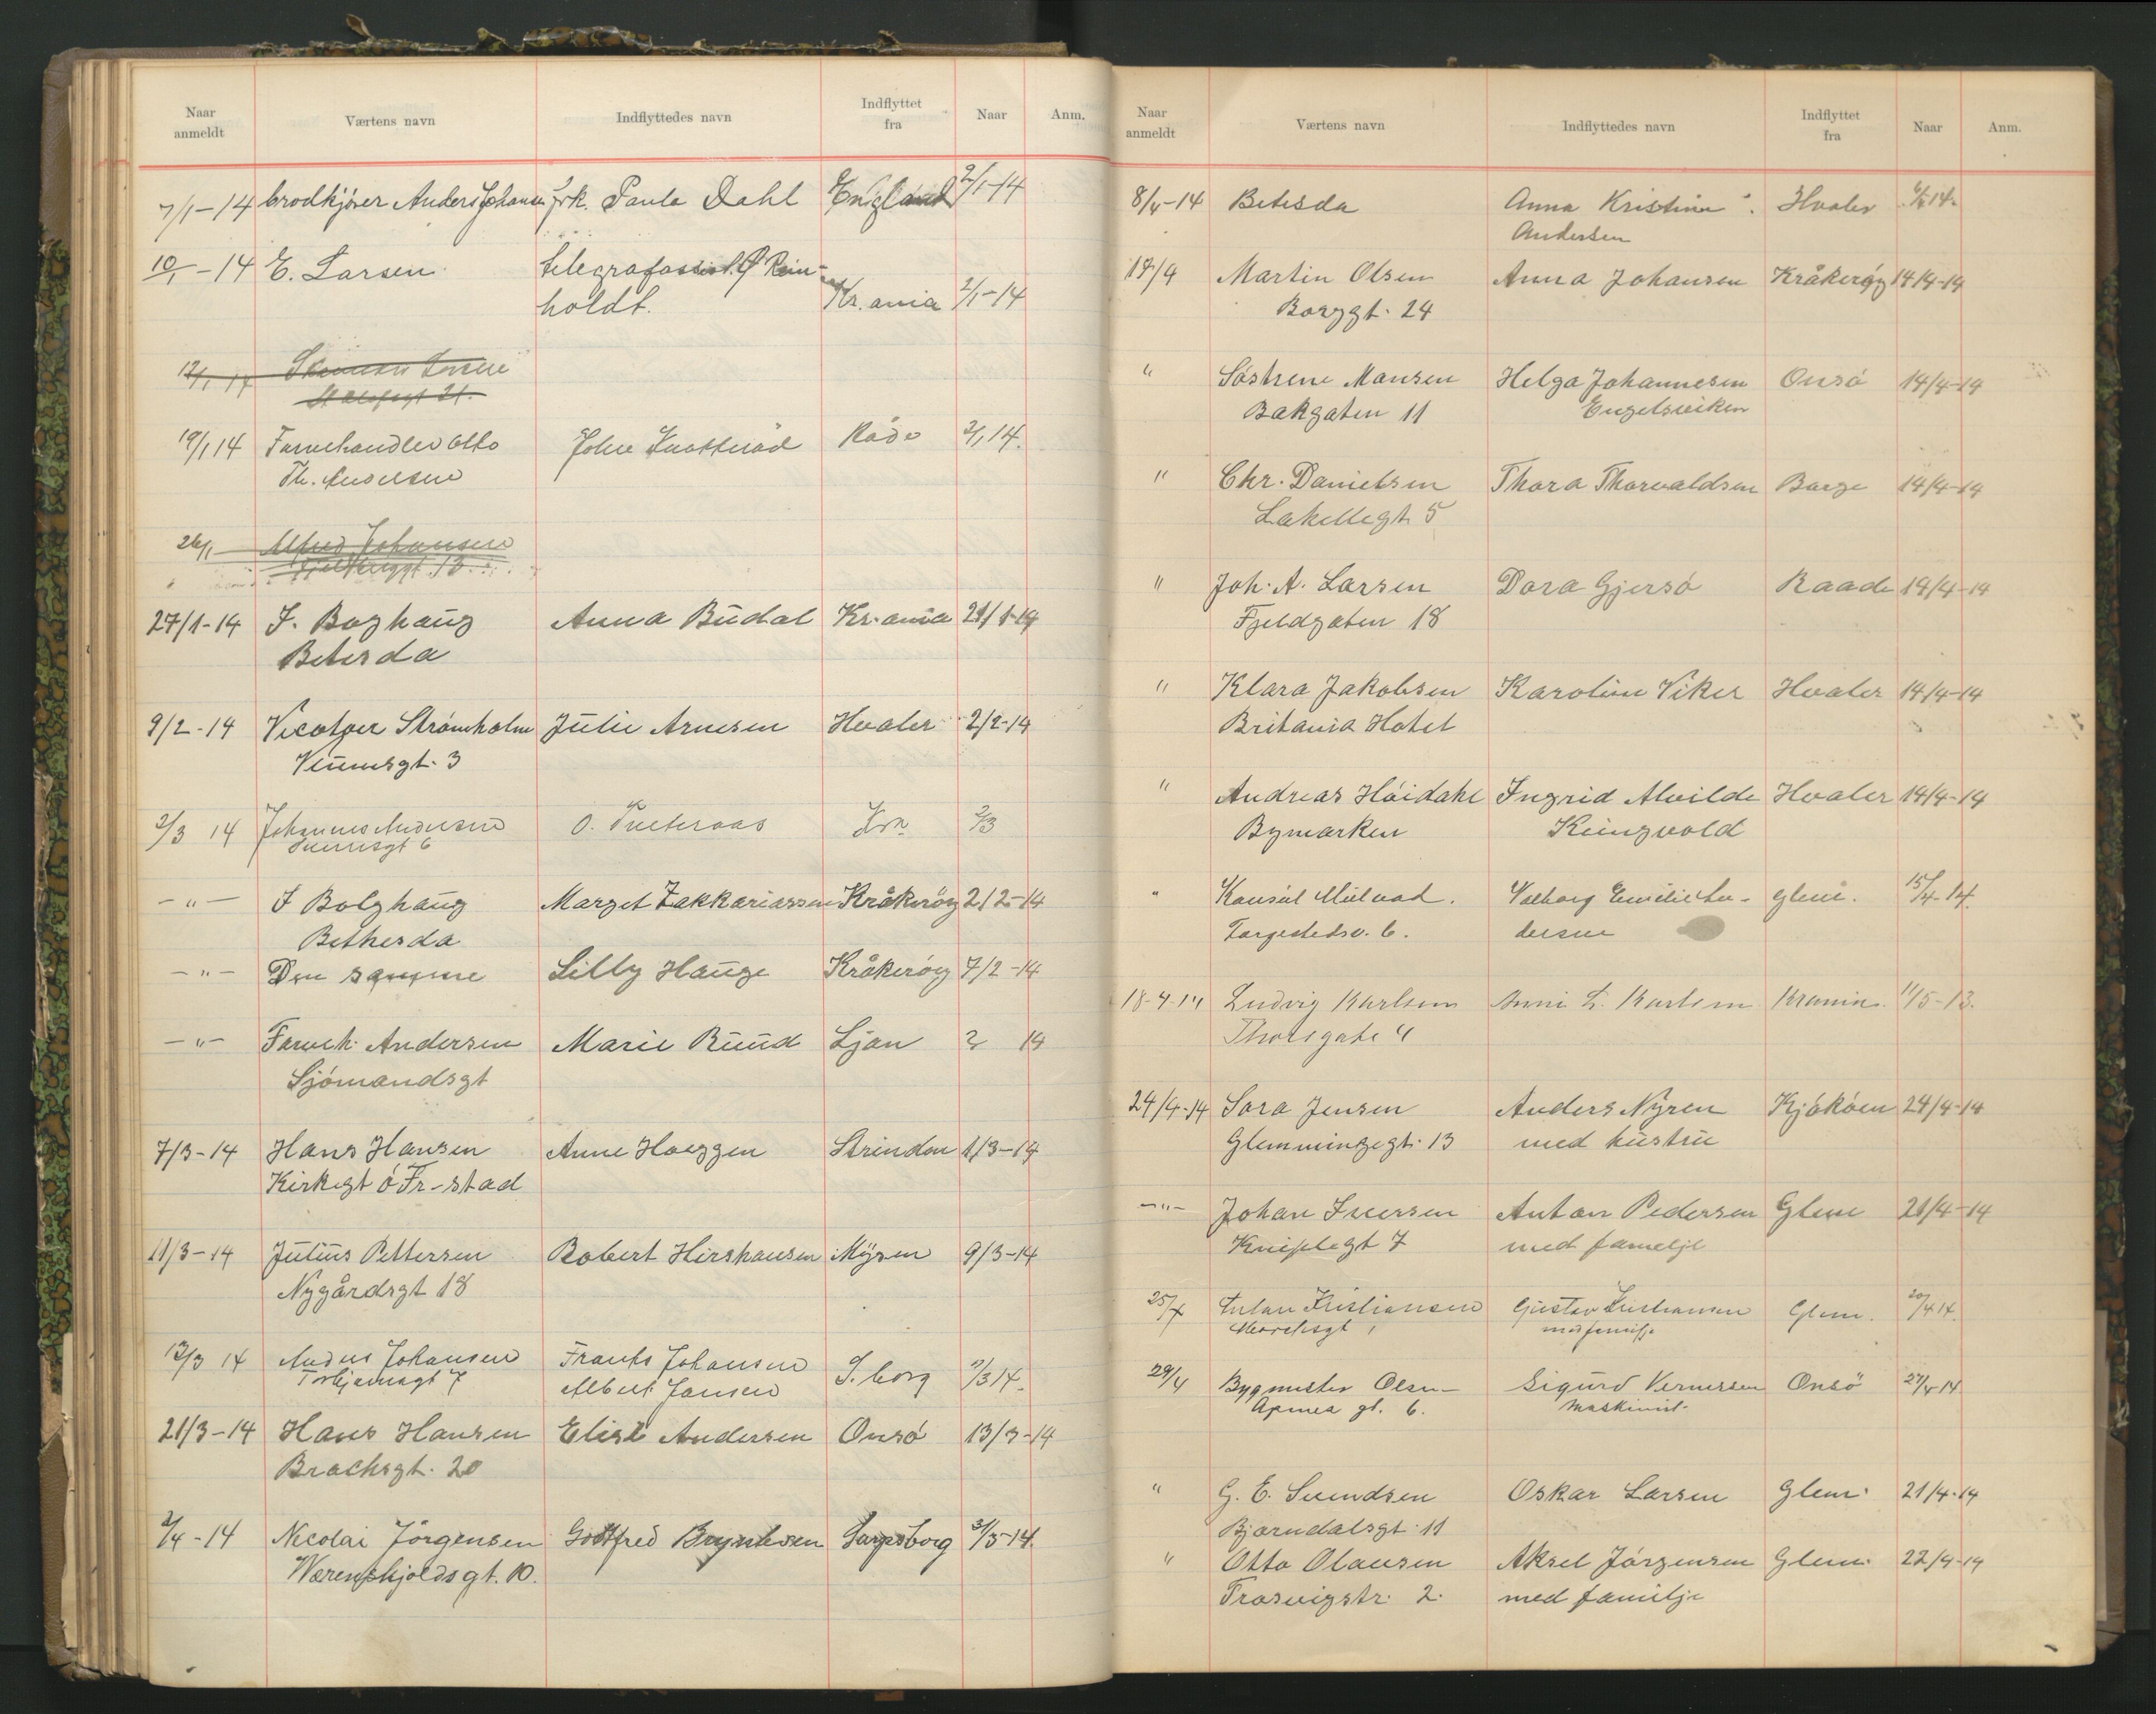 Naar anmeldt Værtens navn Indflyttedes navn Indflyttet fra Naar Anm.
7/1-14 brodkjører Anders Johansen frk. Paula Dahl England 2/1-14
10/1-14 E. Larsen telegrafassist. Ø Rein-
holdt. Kr.ania 2/1-14
12/1 14
19/1 14 Farvehandler Otto John Råde 2/1 14.
Th. Andersen
26/1 Alfred Johansen
13
27/1-14 J. Boghaug Anna Budal Kr.ania 21/1-14
Betesda
9/2-14 Strømholm Julie Arnesen Hvaler 2/2-14
Veumsgt. 3
2/3 14 Johannes Andersen O. Krn 2/3
6
-"- J Bolghaug Marget Zakkariassen Kråkerøy 2/2-14
Bethesda
-"- Den samme Lilly Hauge Kråkerøy 7/2-14
-"- Farveh. Andersen Marie Ruud Ljan 2 14
Sjømandsgt
7/3-14 Hans Hansen Anne Hoeggen Strinden 1/3-14
Kirkegt Ö Fr-stad
11/3-14 Julius Pettersen Robert Hirshausen Mysen 9/3-14
Nygårdsgt 18
12/3 14 Johansen Frants Johansen S.borg 7/3 14.
7 Albert Jansen
21/3-14 Hans Hansen Elise Andersen Onsø 13/3-14
Brochsgt. 20
2/4-14 Nicolai Jörgensen Gottfred Sarpsborg 31/3-14.
Werenskjoldsgt. 10.
Naar anmeldt Værtens navn Indflyttedes navn Indflyttet fra Naar Anm.
8/4-14 Betesda Anna Kristine Hvaler 6/4 14.
Andersen
17/4 Martin Olsen Anna Johansen Kråkerøy 14/4-14
Borggt. 24
" Søstrene Mansen Helga Johannesen Onsø 14/4-14
Bakgaten 11 Engelsviken
" Chr. Danielsen Thora Thorvaldsen Borge 14/4-14
Lakellegt. 5
" Joh. A. Larsen Dora Gjersø Raade 14/4-14
Fjeldgaten 18
" Klara Jakobsen Karoline Viker Hvaler 14/4-14
Britania Hotel
" Andreas Höidahl Ingrid Alvilde Hvaler 14/4-14
Bymarken Kungvold
" Konsul Valborg Emilie An- Glem. 15/4-14.
Torgestedsv. 6. dersen
18-4-14 Ludvig Karlsen Anni L. Karlsen 11/5-13.
Thorsgate
24/4-14 Sara Jensen Anders Nyren Kjøkøen 24/4-14
Glemmingegt. 13 med hustru
-"- Johan Iversen Anton Pedersen Glem 21/4-14
Kniplegt 7 med famelje
25/4 Kristiansen Gustav Kristiansen Glem. 20/4 14.
med familje
29/4 Bygmester Olsen Sigurd Vernersen Onsö 27/4-14
gt. 6. maskinist
" G. E. Svendsen Oskar Larsen Glem. 21/4-14
Bjørndalsgt. 11
" Otto Olausen Aksel Jørgensen Glem. 22/4-14
Trosvigstr. 2. med familje